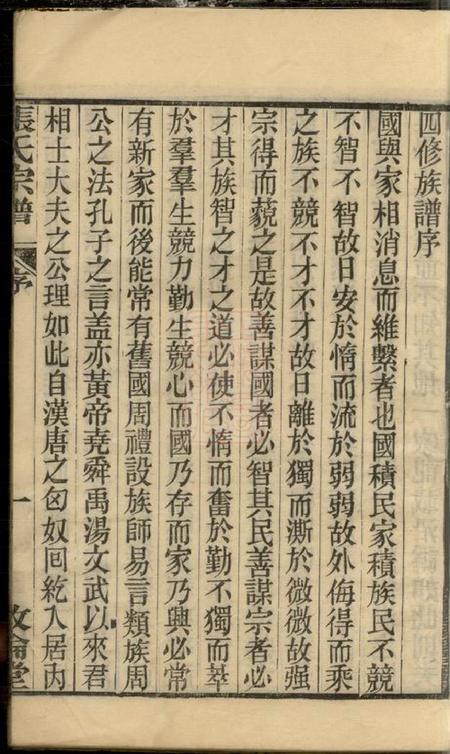 四修族譜序
國與家相消息而維繫者也國積民家積族民不競
不智不智故日安於惰而流於弱弱故外侮得而乘
之族不競不才不才故日離於獨而澌於微微故強
宗得而藐之是故善謀國者必智其民善謀宗者必
才其族智之才之道必使不惰而奮於勤不獨而萃
於羣羣生競力勤生競心而國乃存而家乃興必常
有新家而後能常有舊國周禮設族師易言類族周
公之法孔子之言盖亦黃帝堯舜禹湯文武以來君
相士大夫之公理如此自漢唐之匈奴回紇入居内
張氏宗譜
序
一
敦倫堂